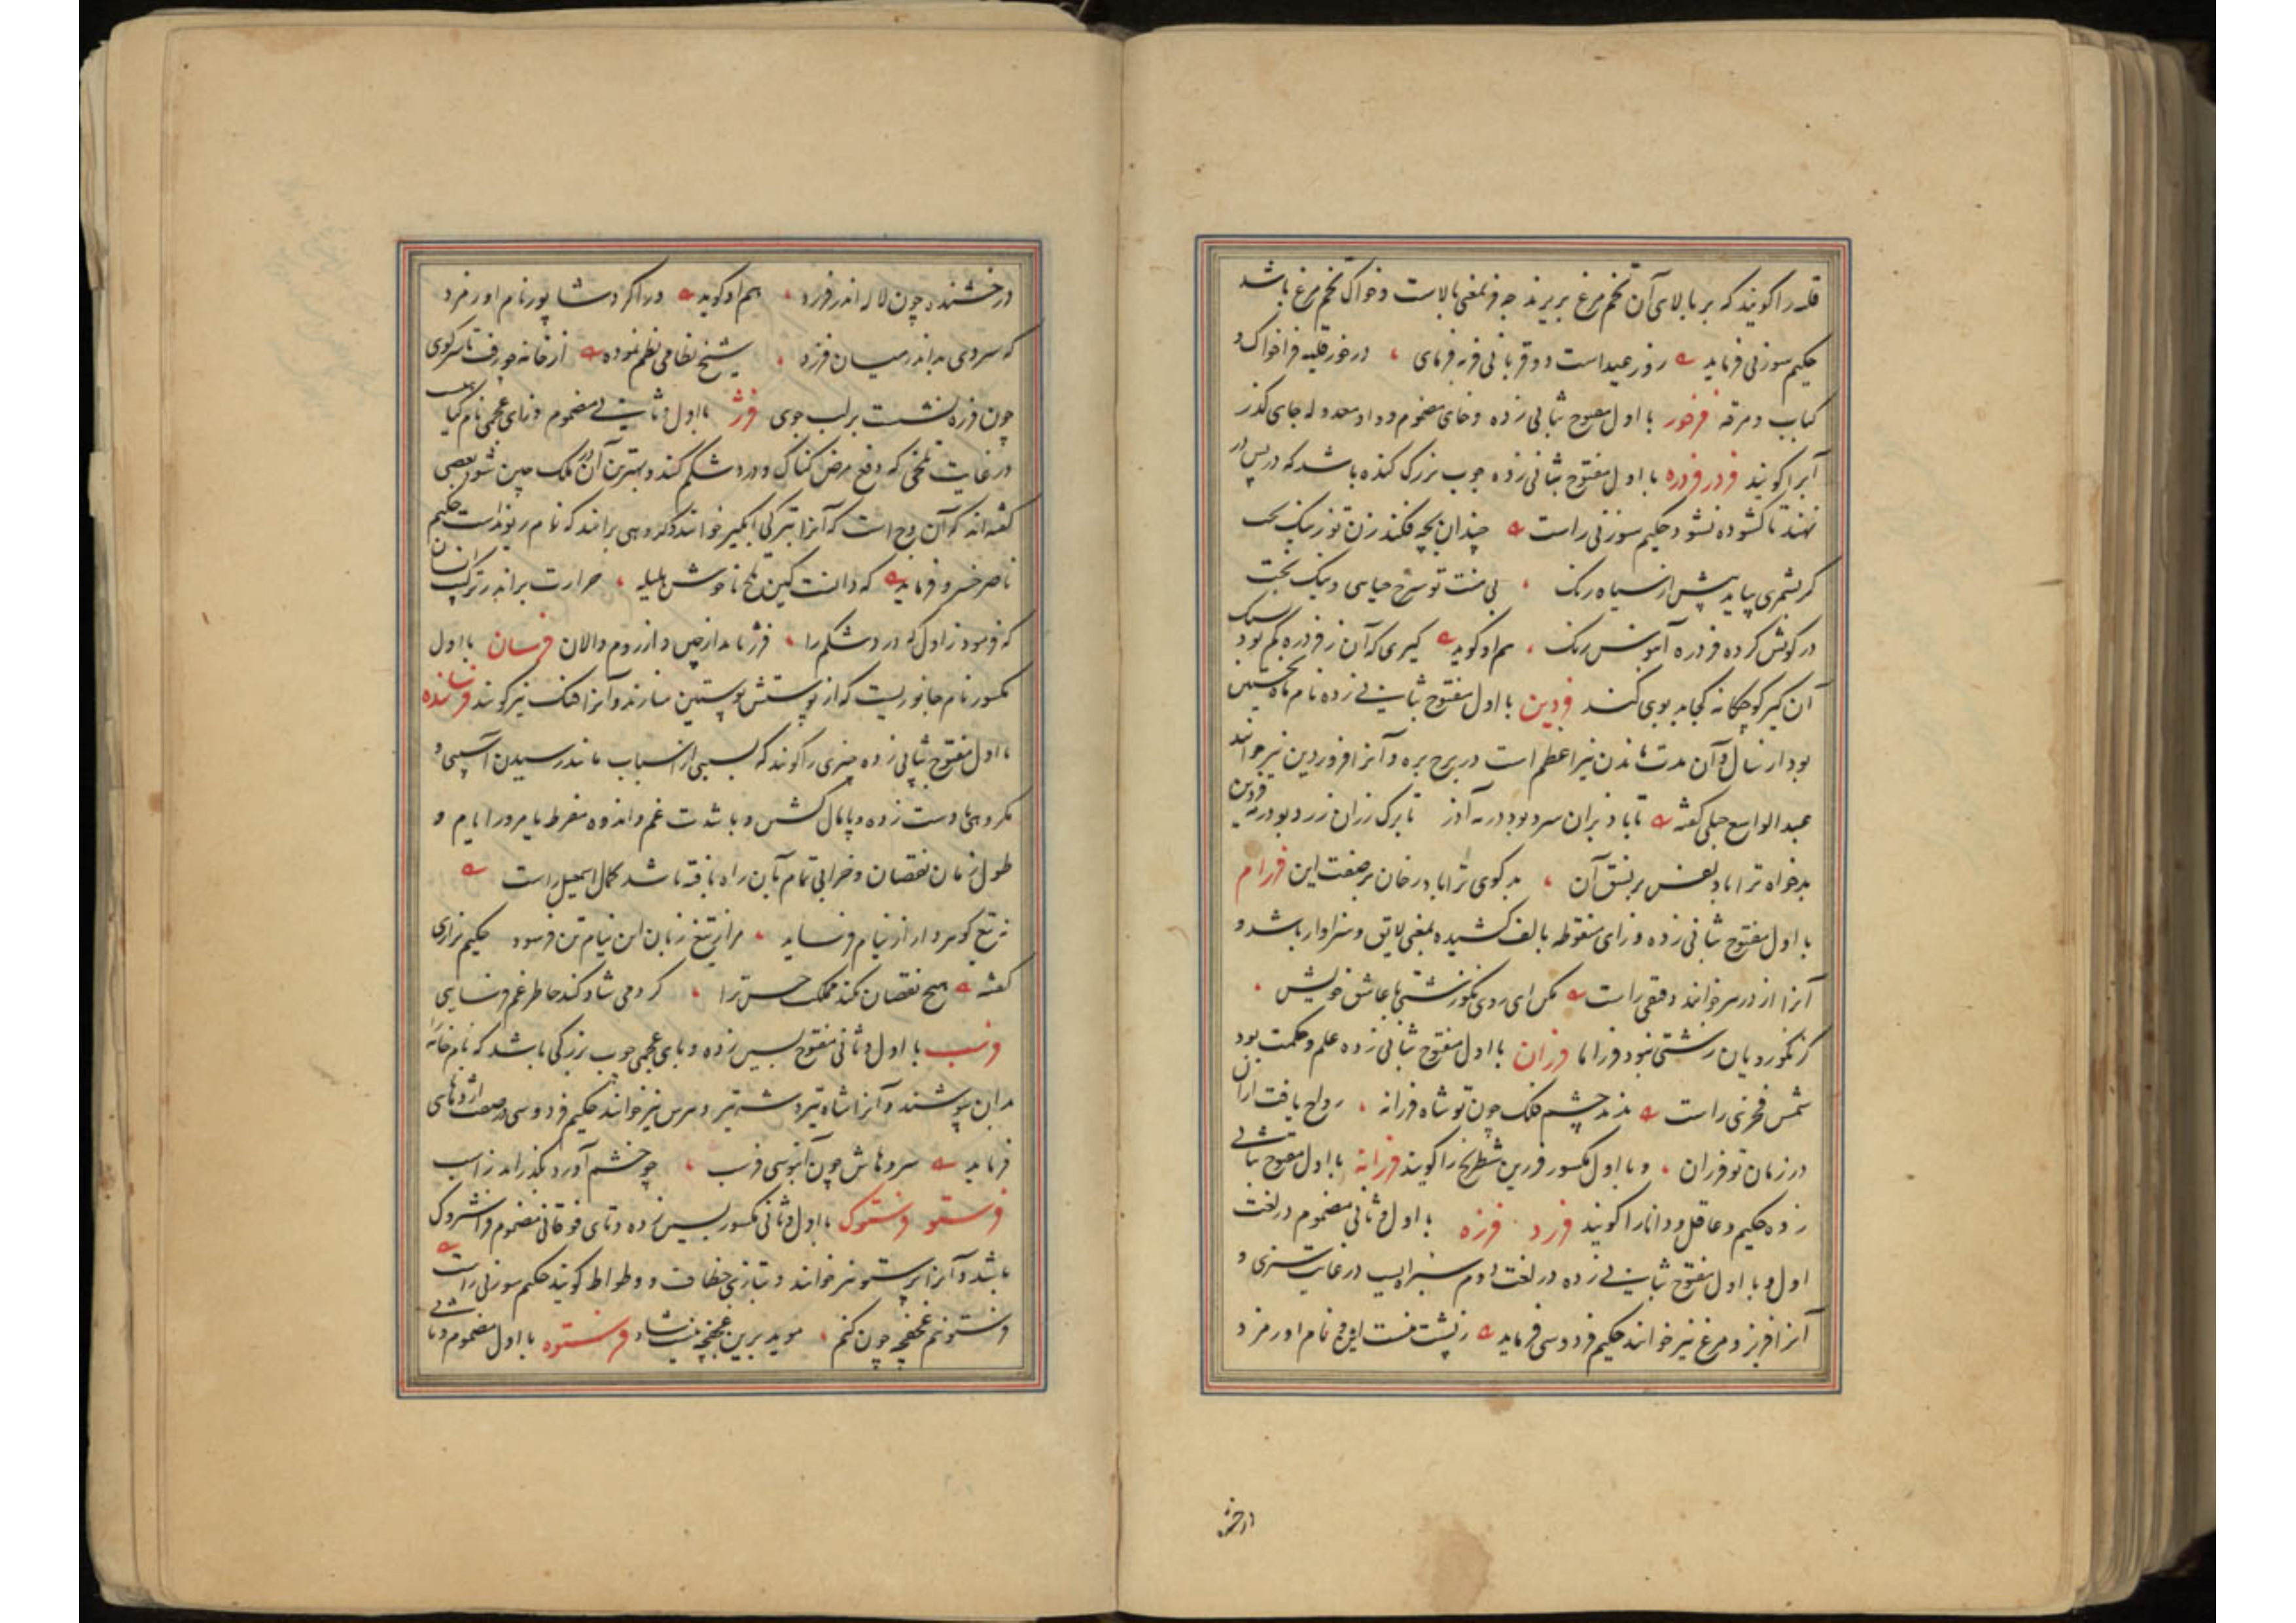 قلیه را گویند که بر بالای آن تخم مرغ بریزند چه فر بمعنی بالاست و خواک تخم مرغ باشد
حکیم سوزنی فرماید روز عید است دو قربانی فربه فرمای در خور قلیه فراخواک و
کباب و مرقه فرخور با اول مفتوح بثانی زده و خای مضموم و واو معدوله جای گذر
آبرا گویند فدر فدره با اول مفتوح بثانی زده چوب بزرگ کنده باشد که در پس در
نهند تا گشوده نشود حکیم سوزنی راست چندان بچه فکند زن تو ز نیک
گر بشمری بیاید بیش از سیاه رنگ
در کونش کرده فدره آبنوس رنگ هم او گوید کیری که آن ز فدره کم بود
آن کیر کودکانه کجا بد بوی کند فردین با اول مفتوح بثانی زده نام ماه نخستین
بود از سال و آن مدت ماندن نیر اعظم است در برج بره و آنرا فروردین نیز خوانند
عبدالواسع جبلی گفته تا باد بزان سرد بود در مه آذر تا برگ رزان زرد بود در مه فردین
بدخواه ترا باد نفس بر نسق آن بدگوی ترا باد رخان بر صفت این فرزام
با اول مفتوح بثانی زده و زای منقوطه بالف کشیده بمعنی لایق و سزاوار باشد و
آنرا از در سر خوانند دقیقی راست مکن ای روی نکو زشتی با عاشق خویش
کز نکورویان زشتی نبود فرزاما فرزان با اول مفتوح بثانی زده علم و حکمت بود
شمس فخری راست ندید چشم فلک چون تو شاه فرزانه رواج یافت ازان
در زمان تو فرزان و با اول مکسور فرزین شطرنج را گویند فرزانه با اول مفتوح بثانی
زده حکیم و عاقل و دانا را گویند فرزد فرزه با اول و ثانی مضموم در لغت
اول و با اول مفتوح بثانی زده در لغت دوم سبزه‌ایست در غایت سبزی و
آنرا فریز و مرغ نیز خوانند حکیم فردوسی فرماید نام اورمزد
درخش
درخشنده چون لاله اندر فرزد هم او گوید ورا کرد شاپور نام اورمزد
که سروی بد اندر میان فرزد شیخ نظامی نظم نموده از خانه چو رفت تا سر کوی
چون فرزه نشست بر لب جوی فرژ با اول و ثانی مضموم و زای عجمی نام گیاهی
در غایت تلخی که دفع مرض کناک و درد شکم کند و بهترین آن در ملک چین شود بعضی
گفته‌اند که آن وج است که آنرا بترکی ایکیر خوانند و گروهی برانند که نام ریوند است حکیم
ناصر خسرو فرماید که دانست کین تلخ ناخوش هلیله حرارت براند ز ترکیب انسان
که فرمود از اول که درد شکم را فرژ باید از چین و از روم والان فرسان با اول
مکسور نام جانوریست که از پوستش پوستین سازند و آنرا هنک نیز گویند فرسانده
با اول مفتوح بثانی زده چیزی را گویند که بسببی از اسباب مانند رسیدن آسیبی و
مکروهی و دست زده و پایمال گشتن و با شدت غم و اندوه مفرط یا مرور ایام و
طول زمان نقصان و خرابی تمام بآن راه یافته باشد کمال اسمعیل راست
نه تیغ گوهردار از نیام فرساید مرا ز تیغ زبان این نیام تن فرسود حکیم نزاری
گفته هیچ نقصان نکند مملکت حسن ترا گر دمی شاد کند خاطر غم فرسایی
فرسب با اول و ثانی مفتوح بسین زده و بای عجمی چوب بزرگی باشد که بام خانه را
بدان بپوشند و آنرا شاه تیر و شه تیر و سرس نیز خوانند حکیم فردوسی در صفت اژدهای
فرماید سروهاش چون آبنوسی فرسب چو خشم آورد بگذراند ز اسب
فرستو فرستوک با اول و ثانی مکسور بسین زده و تای فوقانی مضموم فراشتروک
باشد و آنرا پرستو نیز خوانند و بتازی خطاف و وطواط گویند حکیم سوزنی راست
فرستوئم غفچه چون کنم فرستوه با اول مضموم و ثانی